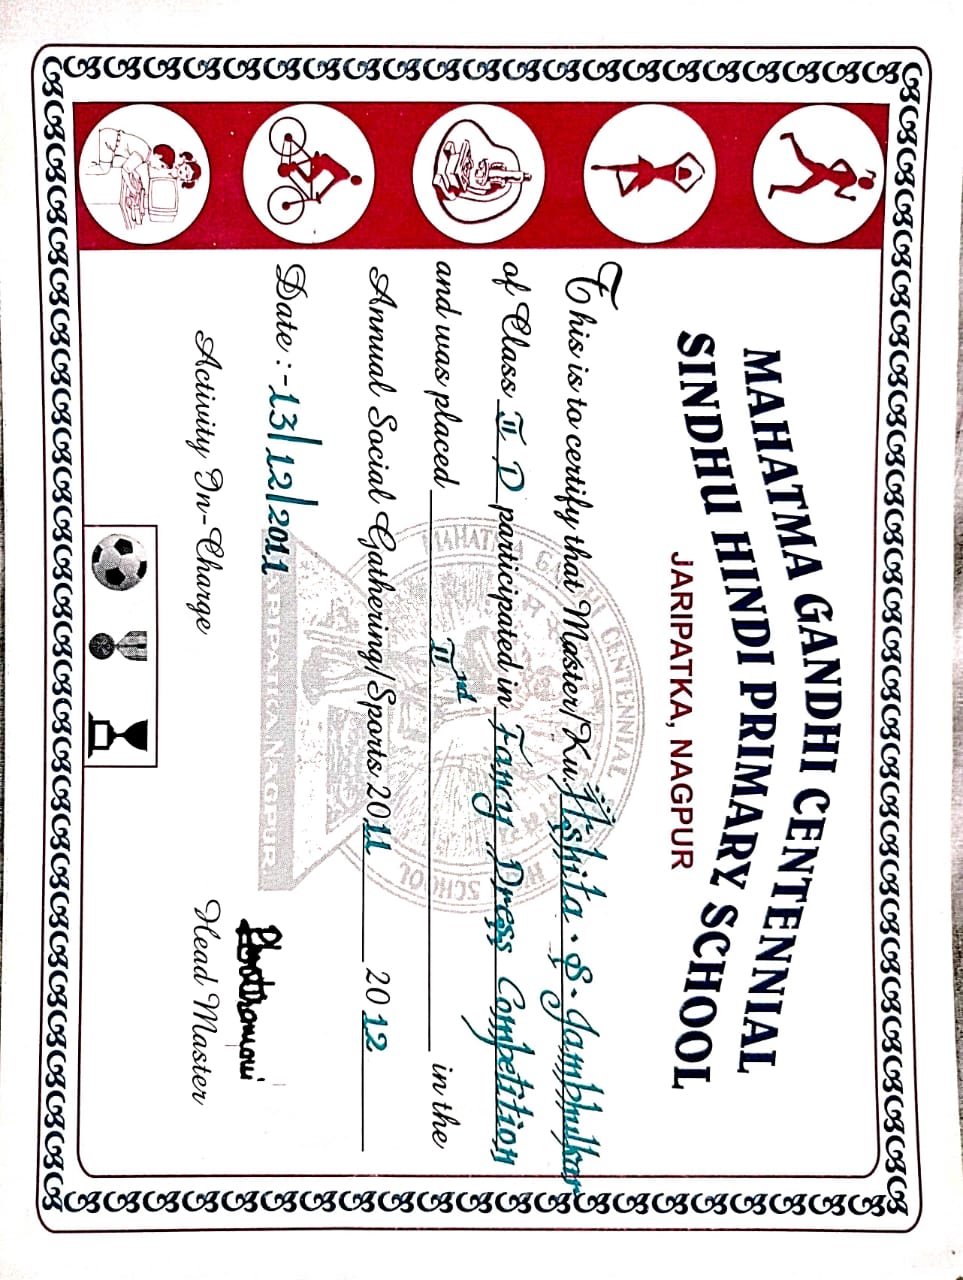 MAHATMA GANDHI CENTENNIAL
SINDHU HINDI PRIMARY SCHOOL
JARIPATKA, NAGPUR
This is to certify that Master/Ku. Itshita . S. Jambhulkar
of Class II D participated in Fancy Dress Competition
and was placed IInd in the
Annual Social Gathering/Sports 2011 2012
Date :- 13/12/2011
Activity In-Charge
Head Master
MAHATMA GANDHI CENTENNIAL SCHOOL
JARIPATKA NAGPUR.